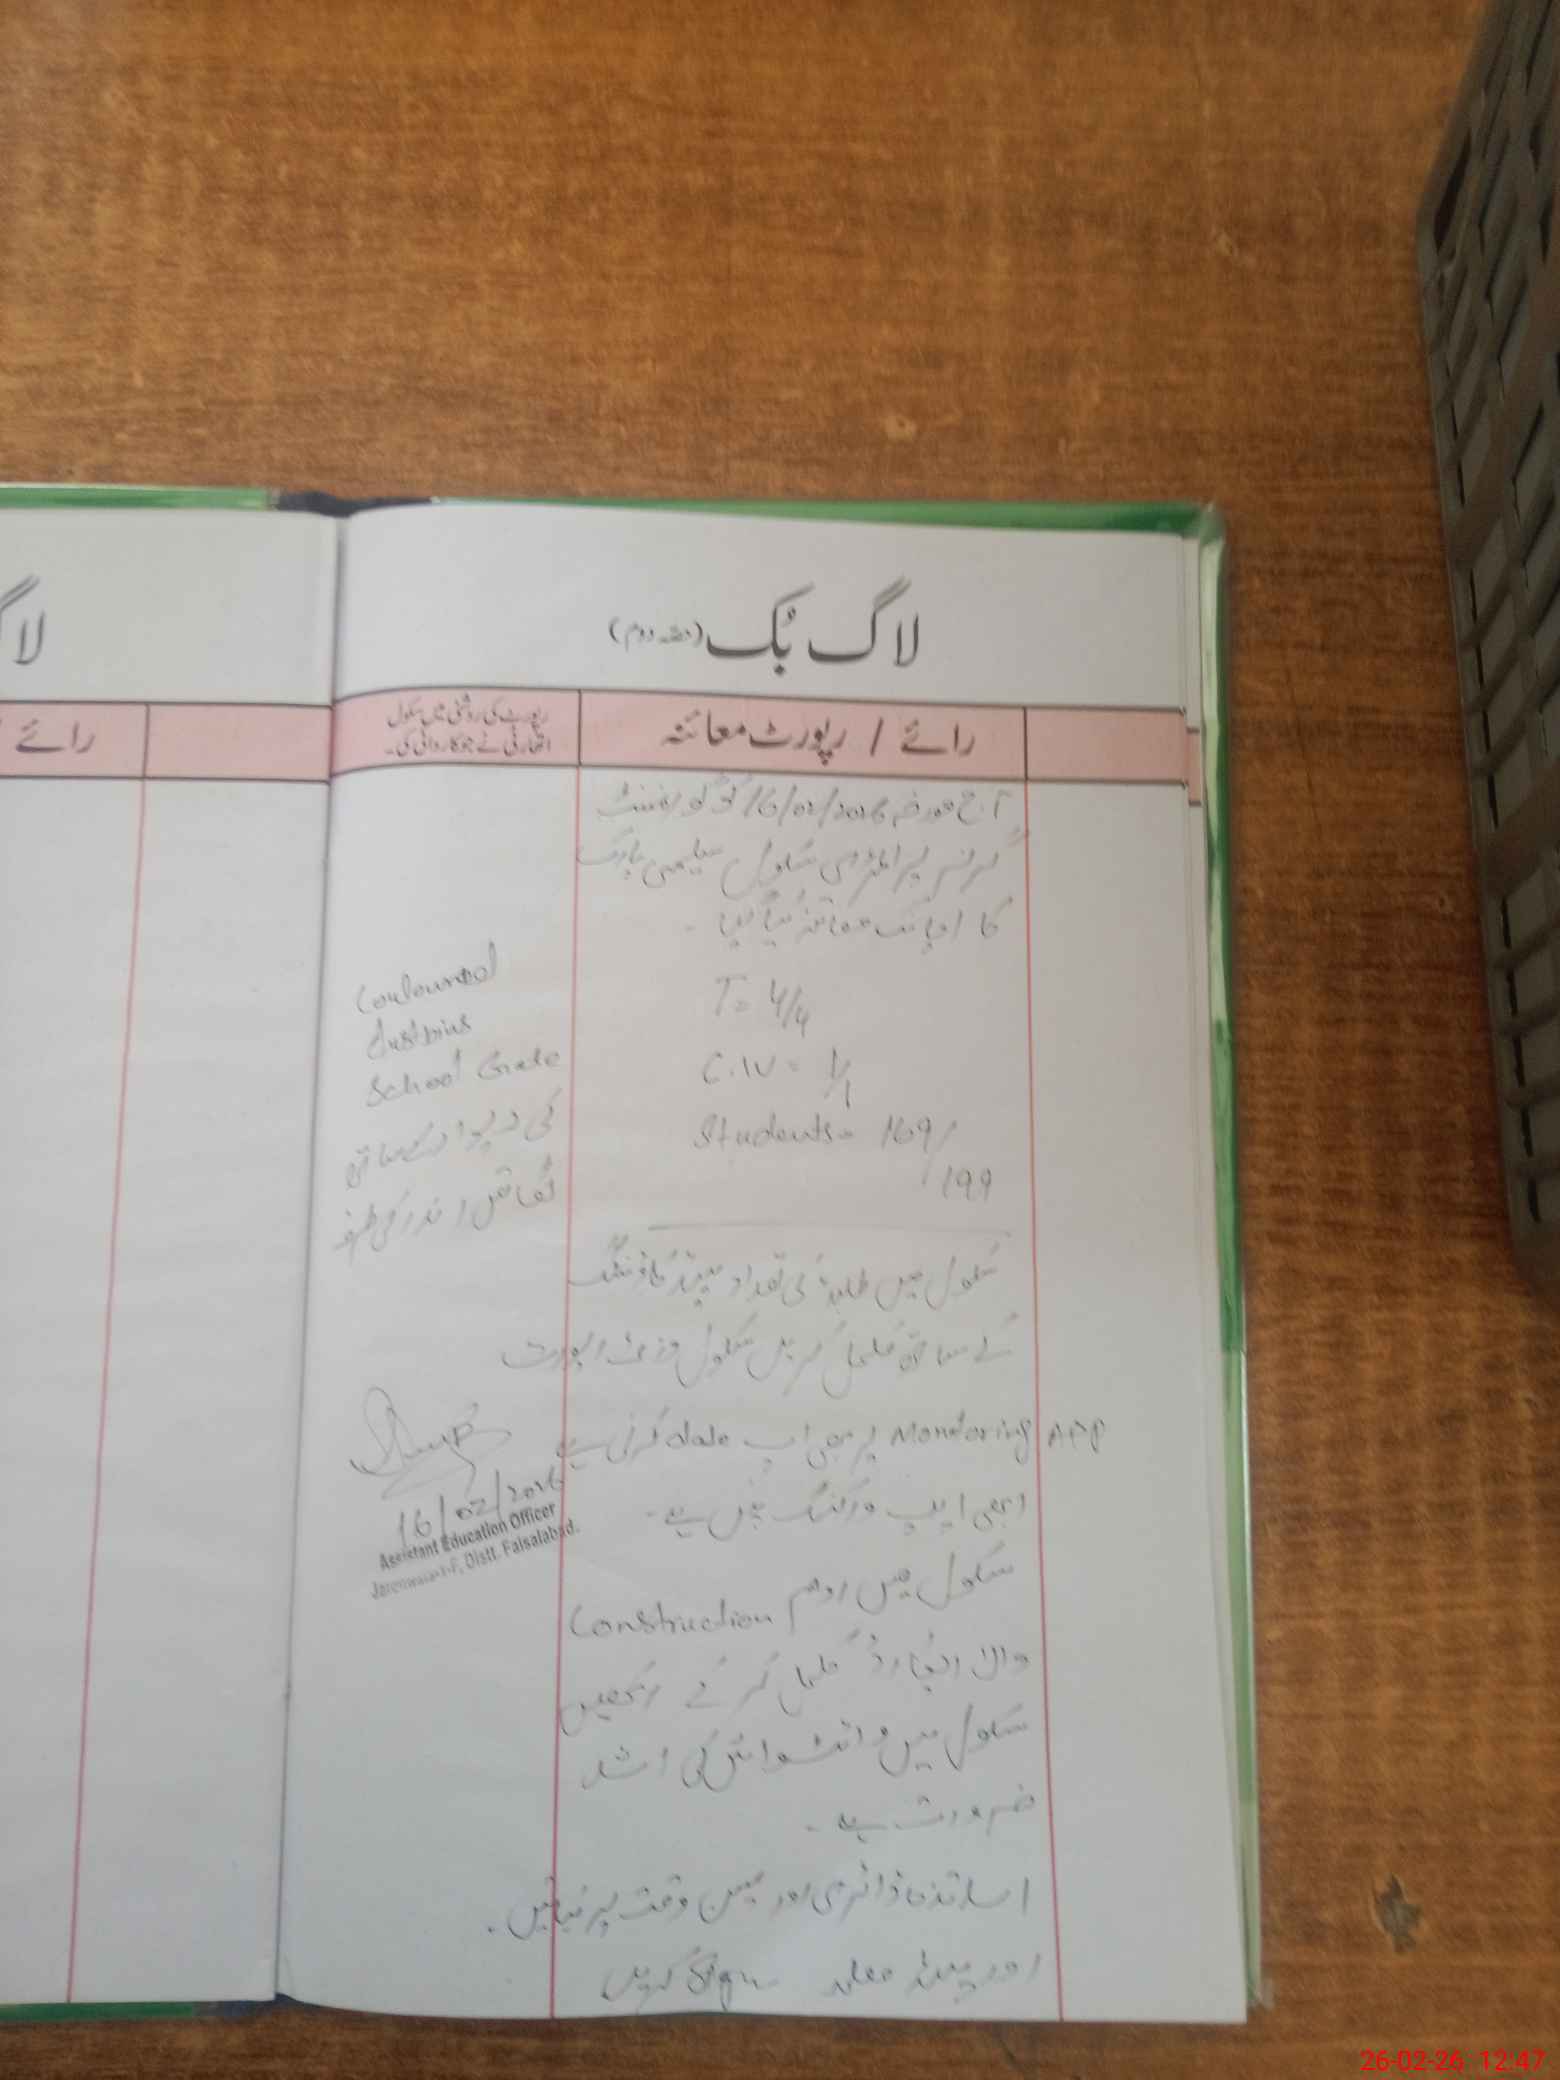 لاگ بُک (حصہ دوم)
رائے / رپورٹ معائنہ
رپورٹ کی روشنی میں سکول
اتھارٹی نے جو کاروائی کی۔
آج مورخہ 16/02/2026 کو گورنمنٹ
گرلز پرائمری سکول سلیمی پارک
کا اچانک معائنہ کیا گیا۔
T = 4/4
C.IV = 1/1
Students = 169/
199
سکول میں طلباء کی تعداد ہیڈ کاؤنٹنگ
کے ساتھ مکمل کریں سکول وزٹ رپورٹ
Monitoring App پر بھی اپ date کرنی ہے
ابھی ایپ ورکنگ نہیں ہے۔
سکول میں روم Construction
والا ریکارڈ مکمل کر کے رکھیں
سکول میں وائٹ واش کی اشد
ضرورت ہے۔
اساتذہ ڈائری اور وقت پر
اور ہیڈ معلمہ Sign کریں
Couloured
dustbins
School Gate
کی دیوار کے ساتھ
اندر کی طرف
16/02/2026
Assistant Education Officer
Jaranwala-F, Distt. Faisalabad.
لاگ
رائے /
26-02-26 12:47